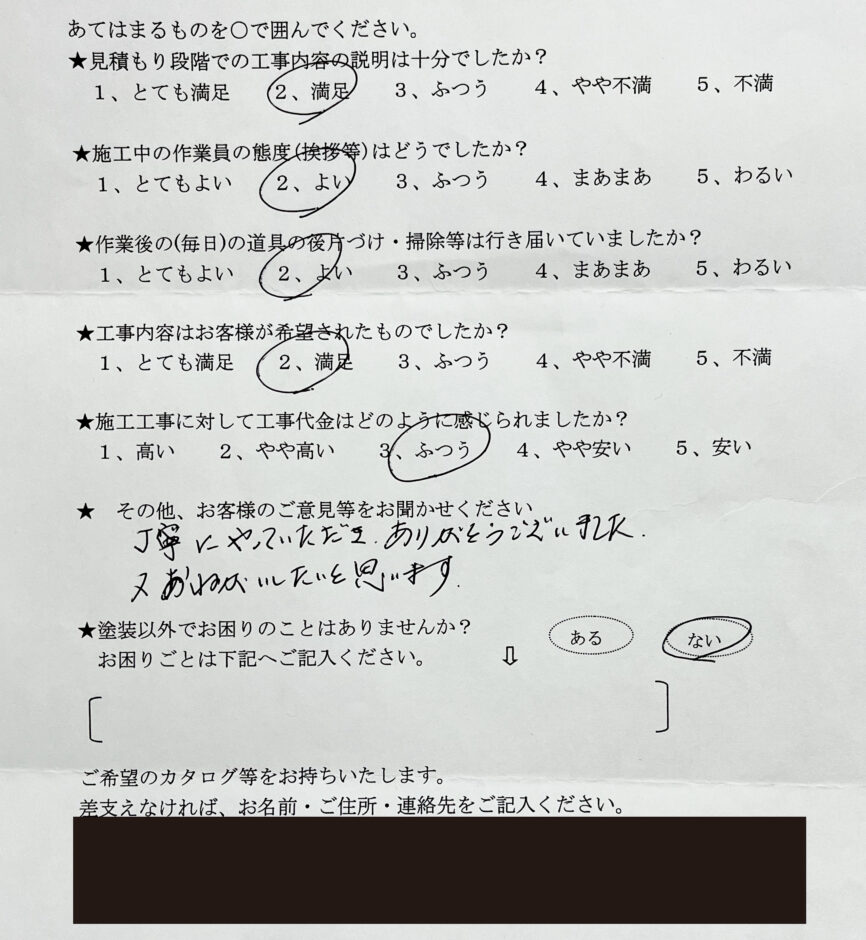 あてはまるものを〇で囲んでください。
★見積もり段階での工事内容の説明は十分でしたか？
１、とても満足　２、満足　３、ふつう　４、やや不満　５、不満
★施工中の作業員の態度(挨拶等)はどうでしたか？
１、とてもよい　２、よい　３、ふつう　４、まあまあ　５、わるい
★作業後の(毎日)の道具の後片づけ・掃除等は行き届いていましたか？
１、とてもよい　２、よい　３、ふつう　４、まあまあ　５、わるい
★工事内容はお客様が希望されたものでしたか？
１、とても満足　２、満足　３、ふつう　４、やや不満　５、不満
★施工工事に対して工事代金はどのように感じられましたか？
１、高い　２、やや高い　３、ふつう　４、やや安い　５、安い
★　その他、お客様のご意見等をお聞かせください
丁寧にやっていただき、ありがとうございました.
又おねがいしたいと思います.
★塗装以外でお困りのことはありませんか？　ある　ない
お困りごとは下記へご記入ください。　⇩
ご希望のカタログ等をお持ちいたします。
差支えなければ、お名前・ご住所・連絡先をご記入ください。